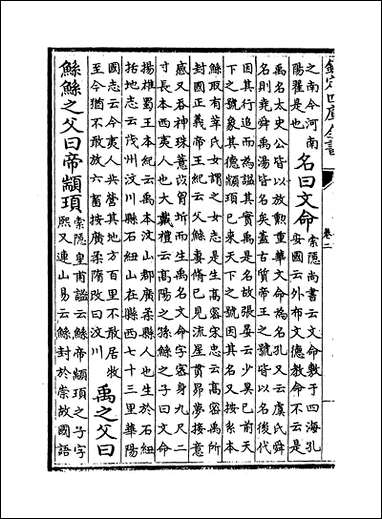 欽定四庫全書
卷二
之南今河南
陽翟是也
名曰文命
索隱尚書云文命敷于四海孔
安國云外布文德教命不云是
禹名太史公皆以放勳重華文命為名孔又云虞氏舜
名則堯舜禹湯皆名矣蓋古質帝王之號皆以名後代
因其行追而為謚其實禹是名故張晏云少昊已前天
下之號象其德顓頊已來天下之號因其名又按系本
鯀取有莘氏女謂之女志是生高密宋忠云高密禹所
封國正義帝王紀云父鯀妻脩己見流星貫昴夢接意
感又吞神珠薏苡胷坼而生禹名文命字密身九尺二
寸長本西夷人也大戴禮云高陽之孫鯀之子曰文命
揚雄蜀王本紀云禹本汶山郡廣柔縣人也生於石紐
括地志云茂州汶川縣石紐山在縣西七十三里華陽
國志云今夷人共營其地方百里不敢居牧
至今猶不敢放六畜按廣柔隋改曰汶川
禹之父曰
鯀鯀之父曰帝顓頊
索隱皇甫謐云鯀帝顓頊之子字
熙又連山易云鯀封於崇故國語